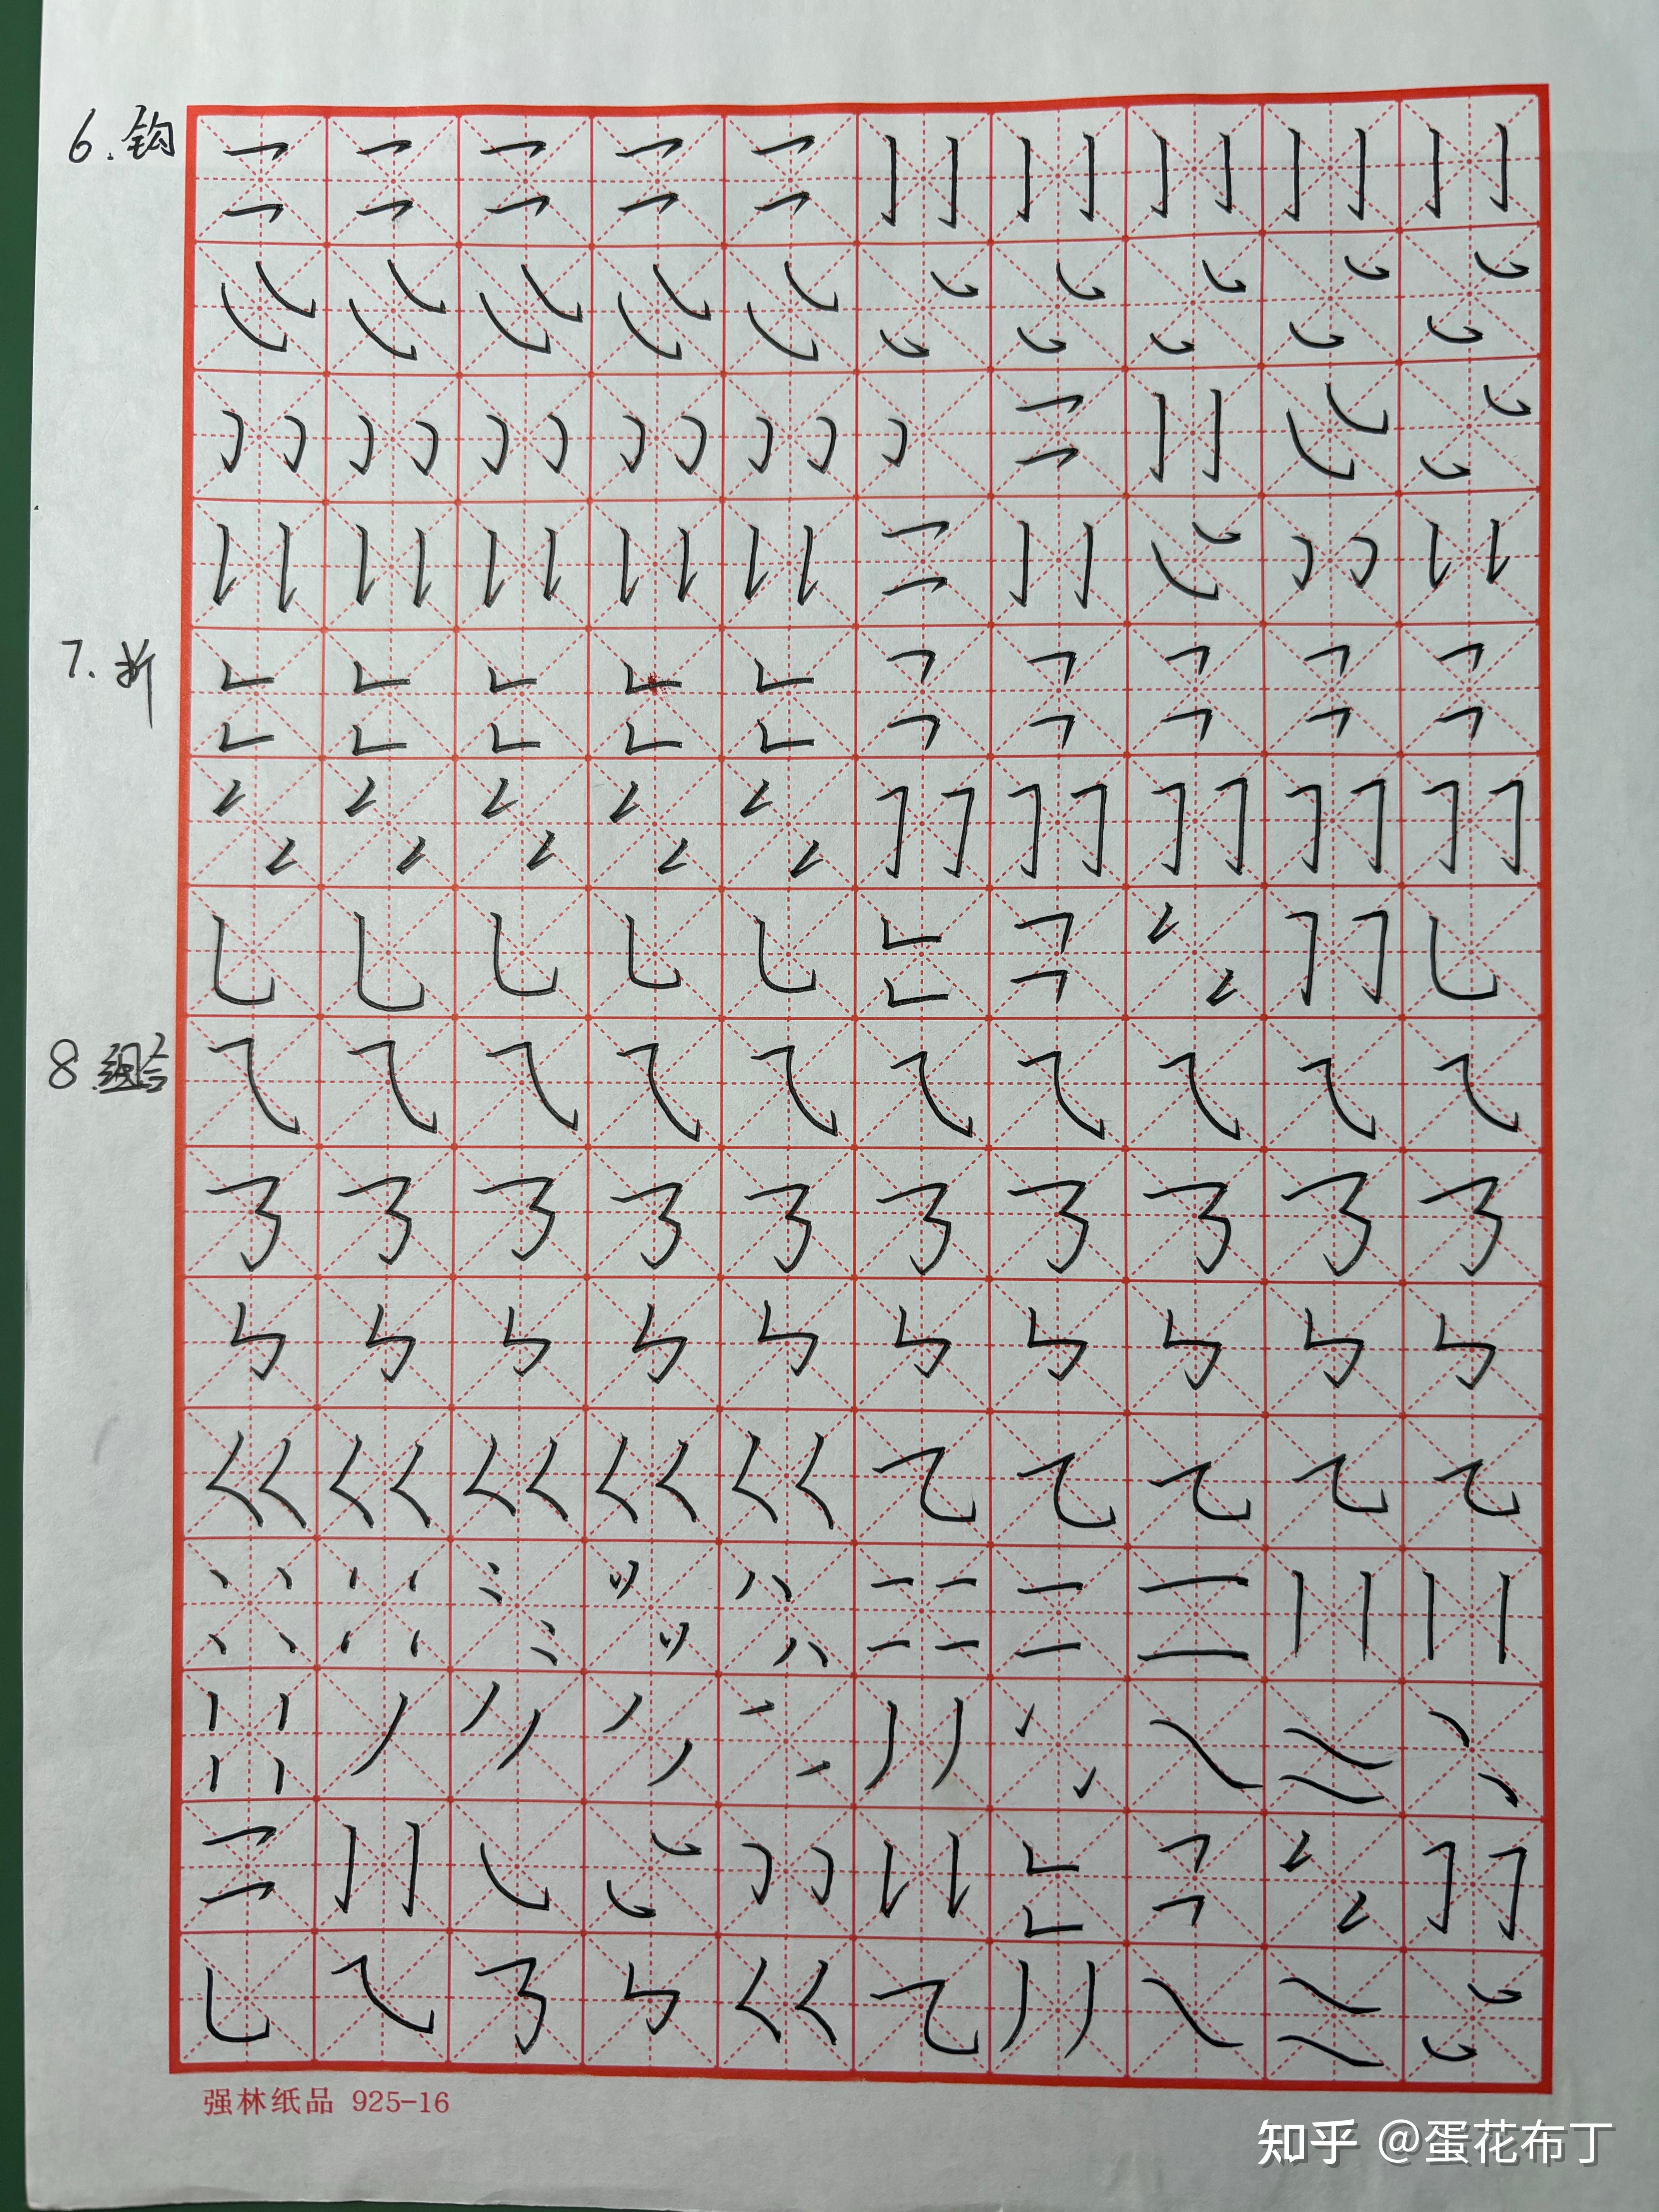 6.钩
7.折
8组合
强林纸品 925-16
知乎 @蛋花布丁